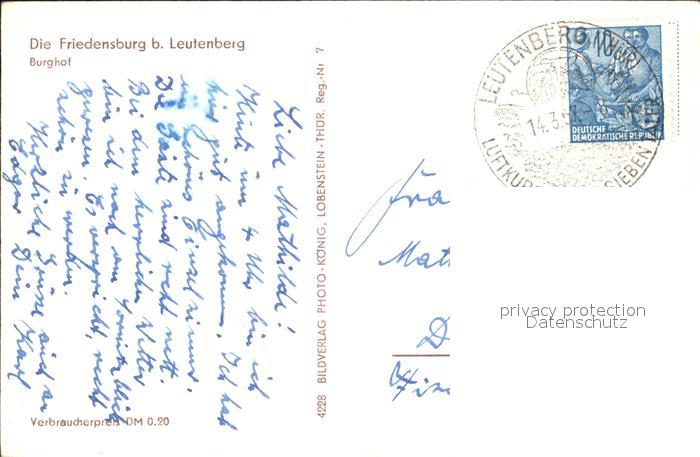 Die Friedensburg b. Leutenberg
Burghof
Liebe Mathilde!
Heute um 4 Uhr bin ich
hier gut angekommen. Ich hab
ein schönes Einzelzimmer.
Die Gäste sind recht nett.
Bei dem herrlichen Wetter
bin ich nach am
gewesen. Es verspricht, recht
schön zu werden.
Herzliche Grüße auch an
Edgar Dein Karl
Verbraucherpreis DM 0.20
4228 BILDVERLAG PHOTO-KÖNIG, LOBENSTEIN-THÜR. Reg.-Nr 7
LEUTENBERG (THÜR)
14.3.5
LUFTKUR SIEBEN
DEUTSCHE
DEMOKRATISCHE REPUBLIK
Fra
Mat
D
privacy protection
Datenschutz